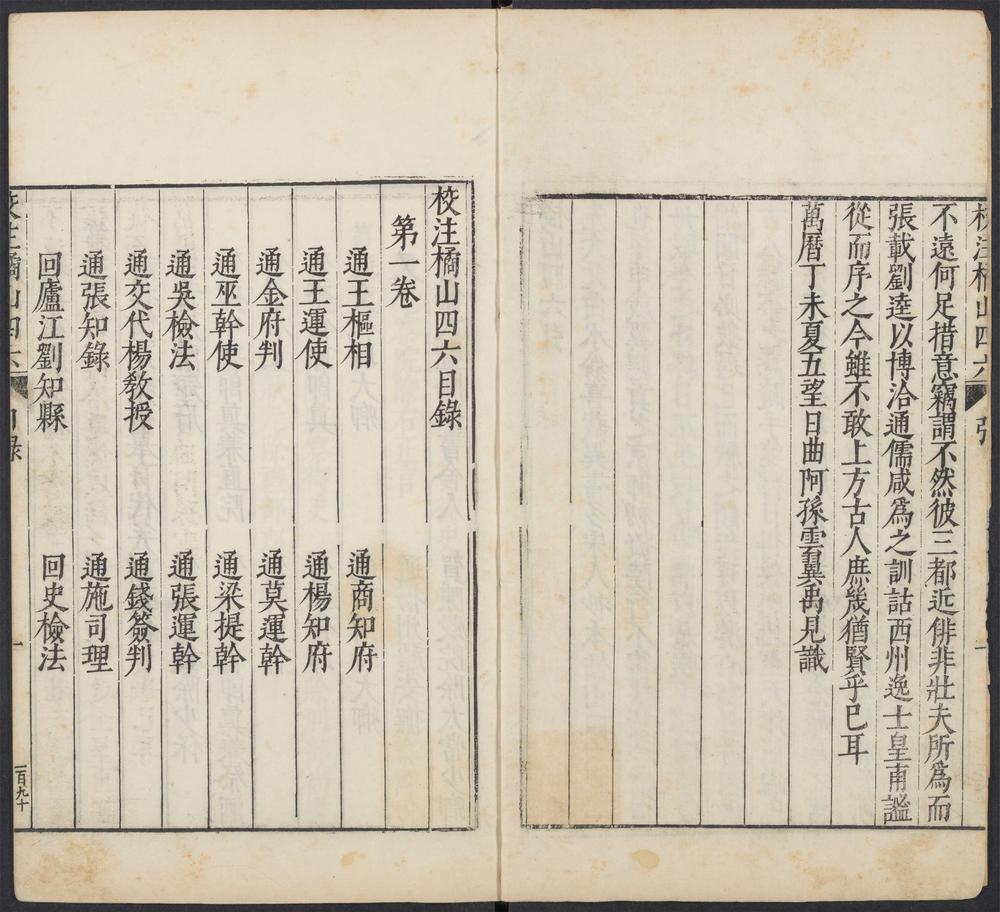 校注橘山四六
不遠何足措意竊謂不然彼三都近俳非壯夫所為而
張載劉逵以博洽通儒咸為之訓詁西州逸士皇甫謐
從而序之今雖不敢上方古人庶幾猶賢乎已耳
萬曆丁未夏五望日曲阿孫雲翼禹見識
校注橘山四六目錄
第一卷
通王樞相　通商知府
通王運使　通楊知府
通金府判　通莫運幹
通巫幹使　通梁提幹
通吳檢法　通張運幹
通交代楊教授　通錢簽判
通張知錄　通施司理
回廬江劉知縣　回史檢法
校注橘山四六　目錄　一　一百九十